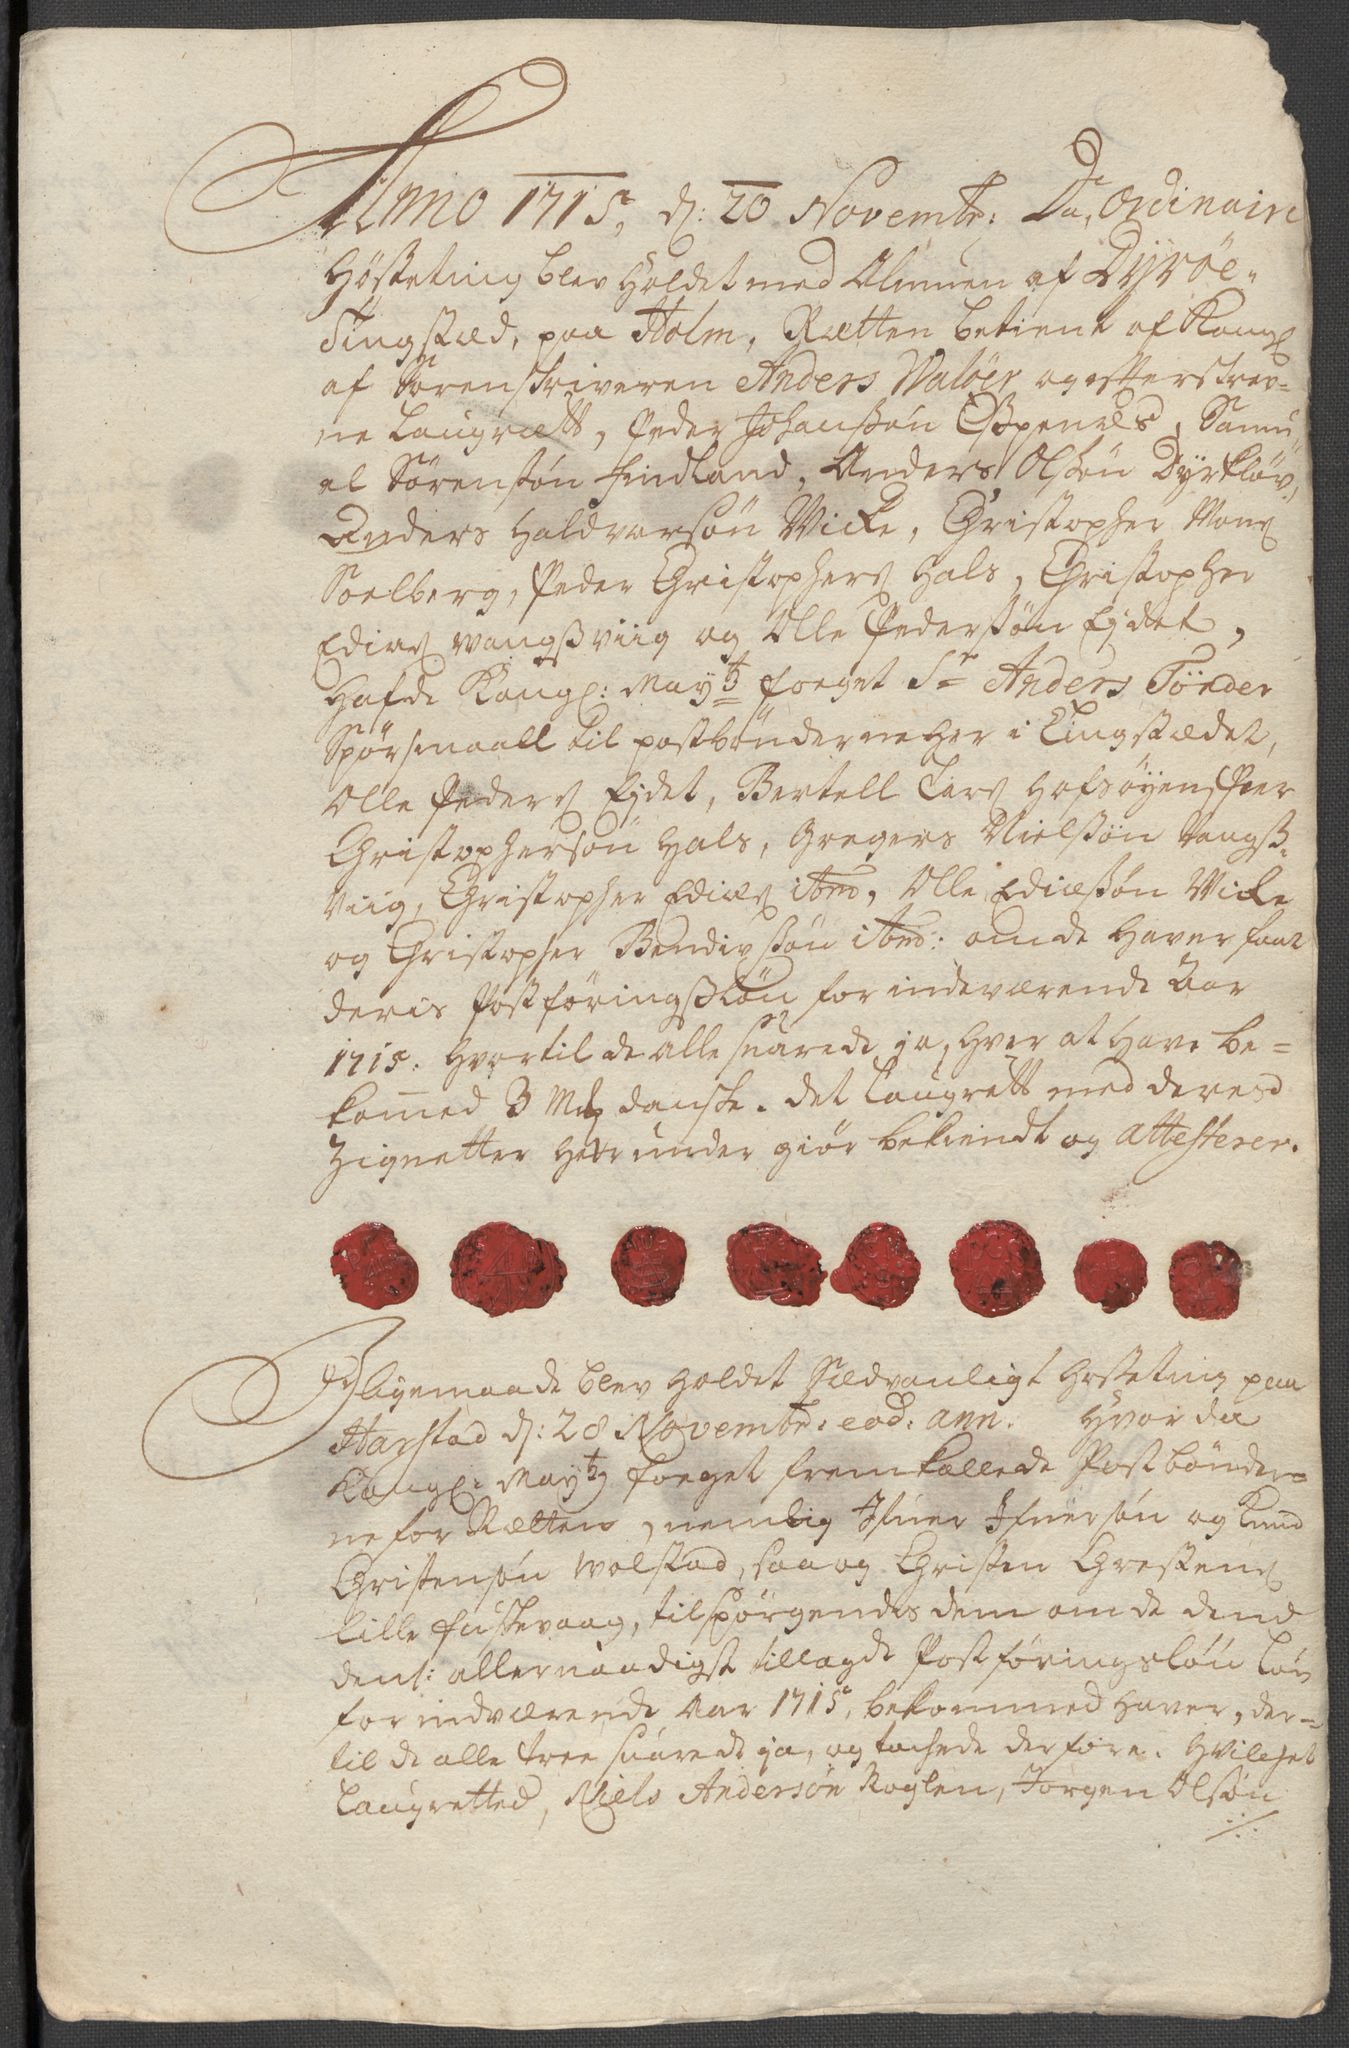 Anno 1715, d: 20 Novembr: Da, ordinaire
Høsteting blev Holdet med Almuen af Dyrøe-
Tingstæd, paa Holm, Rætten betient af Kongl
af Sorenskriveren Anders Waløer og efterskrev-
ne Laugrætt, Peder Johanssøn Esspenæs, Samu-
el Sørenssøn Findland, Anders Olssøn Dyrkløv,
Anders Haldvorsøn Wicke, Christopher Mons
Soelberg, Peder Christophers Hals, Christopher
Ediæs wangssviig og Olle Pederssøn Ejdet,
Hafde Kongl: Mayts foeget Sr Anders Tønder
Spørsmaall til postbønderne her i Tingstædet,
Olle Peders Ejdet, Bertell Lars Hofsøyen, Peer
Christophersøn Hals, Gregers Nielssøn vangss-
viig, Christopher Ediæs ibm, Olle Ediæssøn Wicke
og Christopher Bendixssøn ibm: om de Haver faat
deris Postføringssløn for indeværende Aar
1715. Hvortil de alle suarede ja, Hver at Have be-
kommed 3 Mk danske. det Laugrett med deres
Zignetter Her under giør bekiendt og attesterer.
Ligemaade blev Holdet Sædvanligt Høsteting paa
Harstad d: 28 Novembr: eod: ann. Hvor da
Kongl: Mayts foeget fremkallede Postbønder-
ne for Rætten, nemlig Ifuer Ifuersøn og Knud
Christensøn Wolstad, saa og Christen Christens
Lille fuskevaag, tilspørgendes dem om de dend
dem: allernaadigst tillagde Postføringsløn Løn
for indværende Aar 1715, bekommed Haver, der-
til de alle tree suarede ja, og tachede derfore. Hvilchet
Laugretted, Niels Andersøn Roglen, Jørgen Olsøn